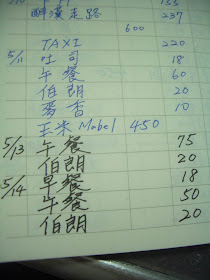 醉漢走路 237
600
TAXI 220
5/11 吐司 18
午餐 60
伯朗 20
麥香 10
玉米 Mabel 450
5/13 午餐 75
伯朗 20
5/14 早餐 18
午餐 50
伯朗 20